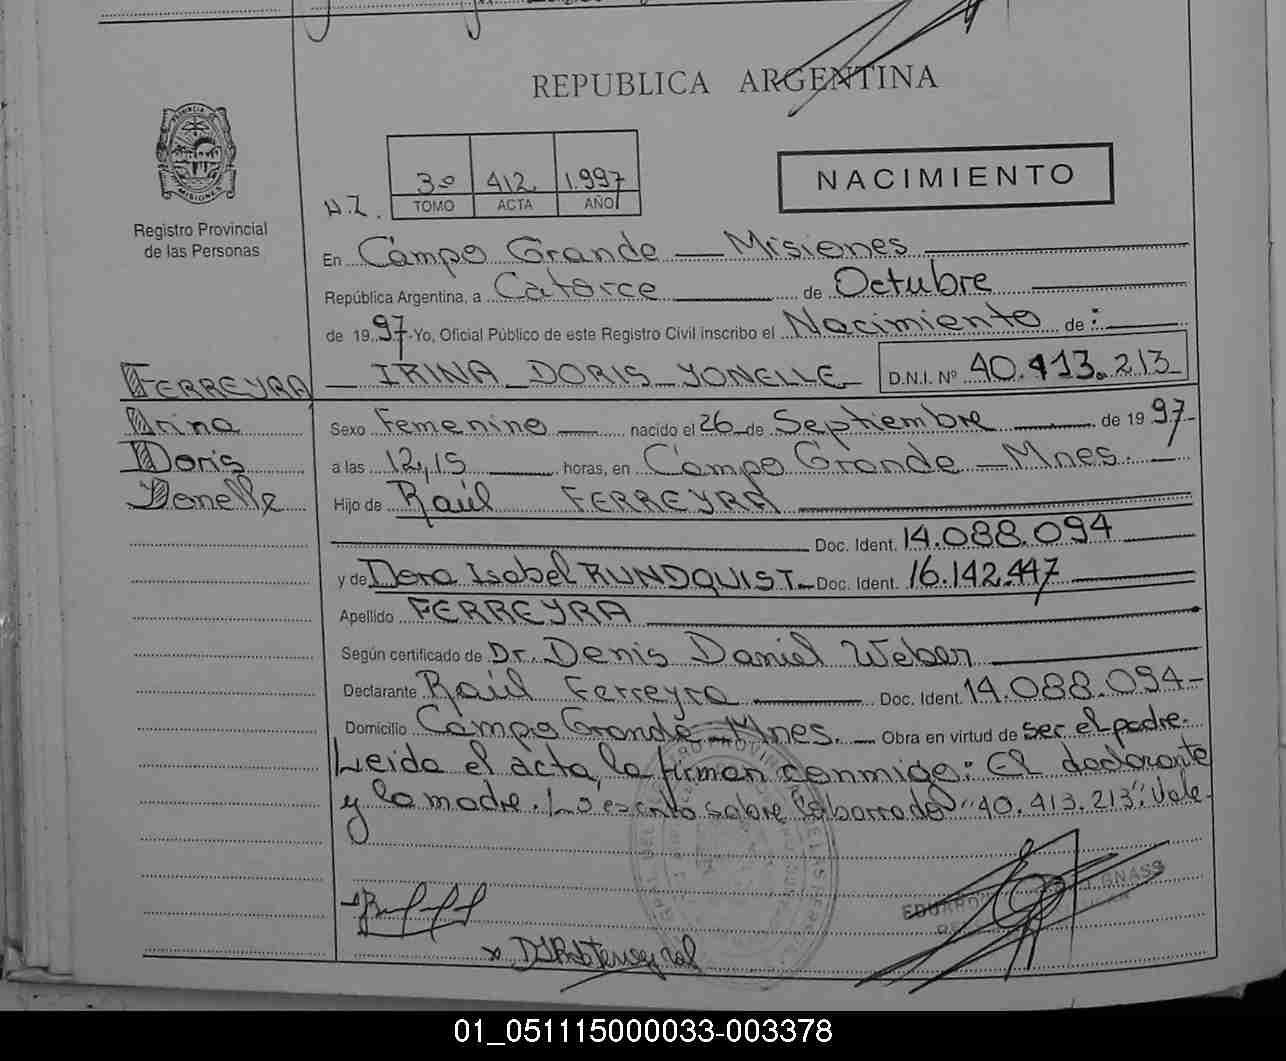 REPUBLICA ARGENTINA
PROVINCIA DE MISIONES
Registro Provincial
de las Personas
3º 412 1.997
TOMO ACTA AÑO
N.Z.
NACIMIENTO
En Campo Grande — Misiones
República Argentina, a Catorce de Octubre
de 1997-Yo, Oficial Público de este Registro Civil inscribo el Nacimiento de:
FERREYRA
IRINA DORIS YONELLE D.N.I. Nº 40.413.213
Irina
Doris
Yonelle
Sexo Femenino nacido el 26 de Septiembre de 1997-
a las 12,15 horas, en Campo Grande — Mnes.
Hijo de Raúl FERREYRA
Doc. Ident. 14.088.094
y de Dora Isabel RUNDQUIST Doc. Ident. 16.142.447
Apellido FERREYRA
Según certificado de Dr. Denis Daniel Weber
Declarante Raúl Ferreyra Doc. Ident. 14.088.094-
Domicilio Campo Grande — Mnes. — Obra en virtud de ser el padre.
Leida el acta, la firman conmigo: El declarante
y la madre. Lo escrito sobre lo borrado "40.413.213". Vale-
GNASS
01_051115000033-003378